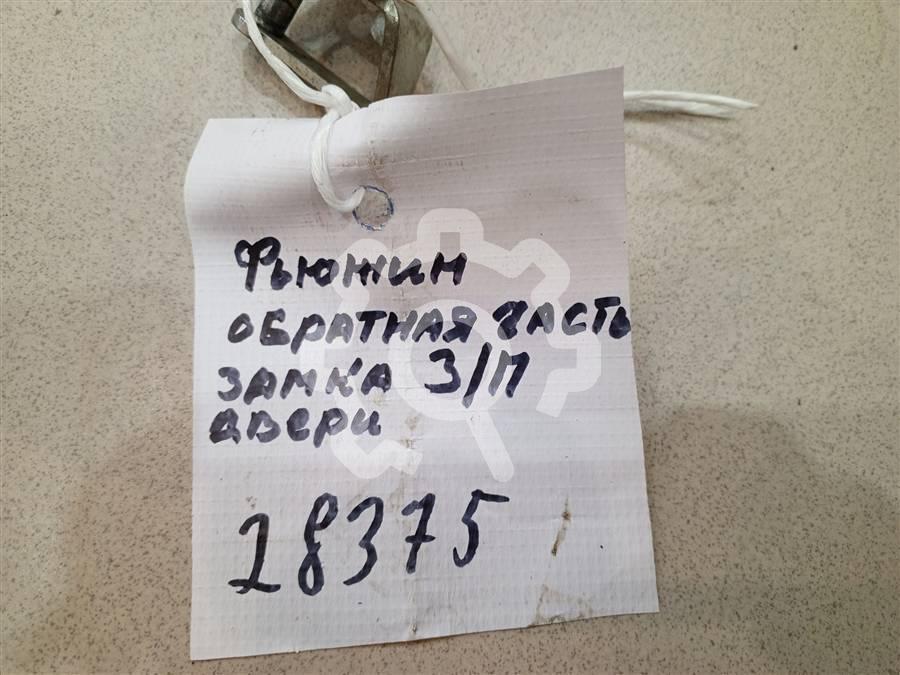 Фьюжин
ОБРАТНАЯ ЧАСТЬ
ЗАМКА З/П
двери
28375